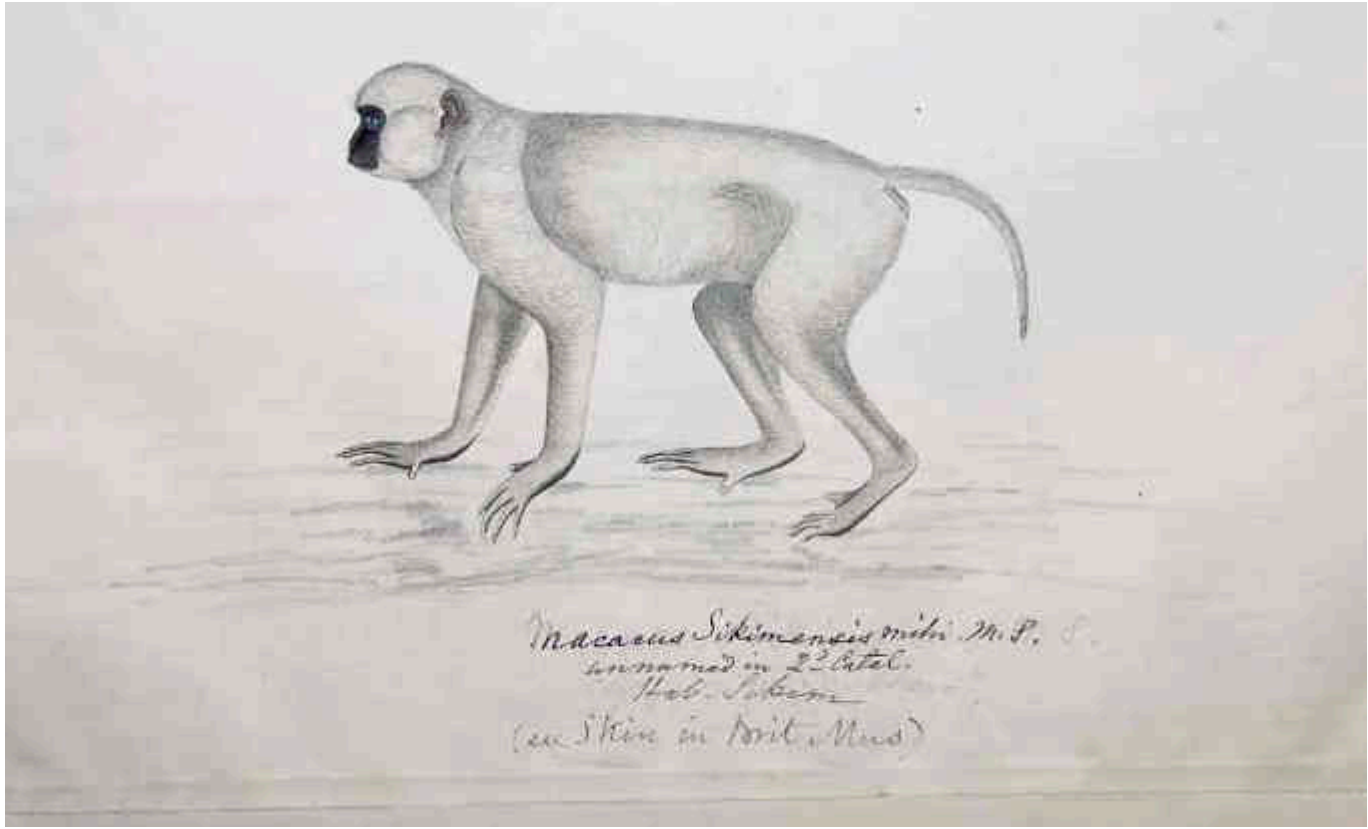 Macacus Sikimensis mihi M.S. S.
unnamed in 2d Catal.
Hab. Sikim
(Skin in Brit. Mus)